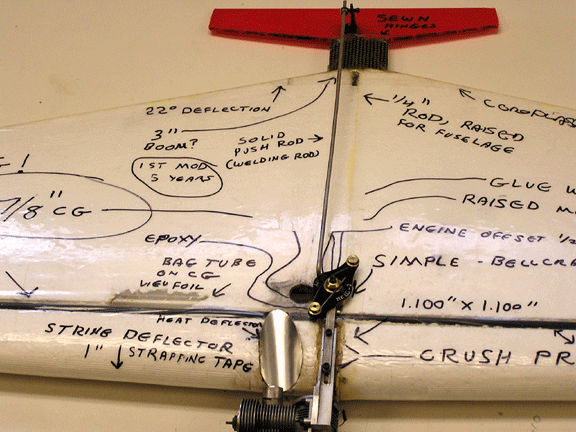 SEWN
HINGES
22° DEFLECTION
3"
BOOM?
1ST MOD
5 YEARS
SOLID
PUSH ROD
(WELDING ROD)
1/4"
ROD, RAISED
FOR FUSELAGE
COROPLAS
G!
7/8" CG
GLUE W
RAISED M
EPOXY
BAG TUBE
ON CG
ENGINE OFFSET 1/2
SIMPLE - BELLCRA
1.100" X 1.100"
HEAT DEFLECTOR
STRING DEFLECTOR
1" STRAPPING TAPE
CRUSH PR